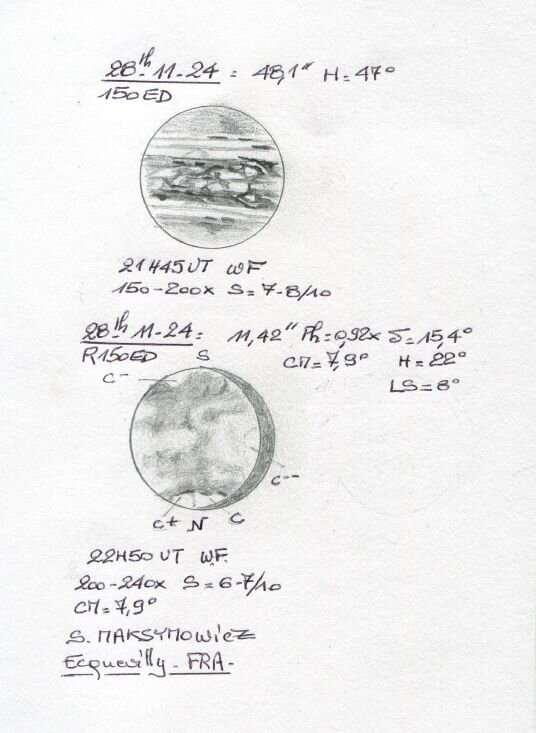 28th-11-24 : 48,1" H=47°
150ED
21H45UT WF
150-200x S=7-8/10
28th 11-24: 11,42" Ph=0,92x δ=15,4°
R150ED S CM=7,9° H=22°
C- LS=8°
C--
C+ N C
22H50UT W.F.
200-240x S=6-7/10
CM=7,9°
S. MAKSYMOWicZ
Ecquevilly-FRA-